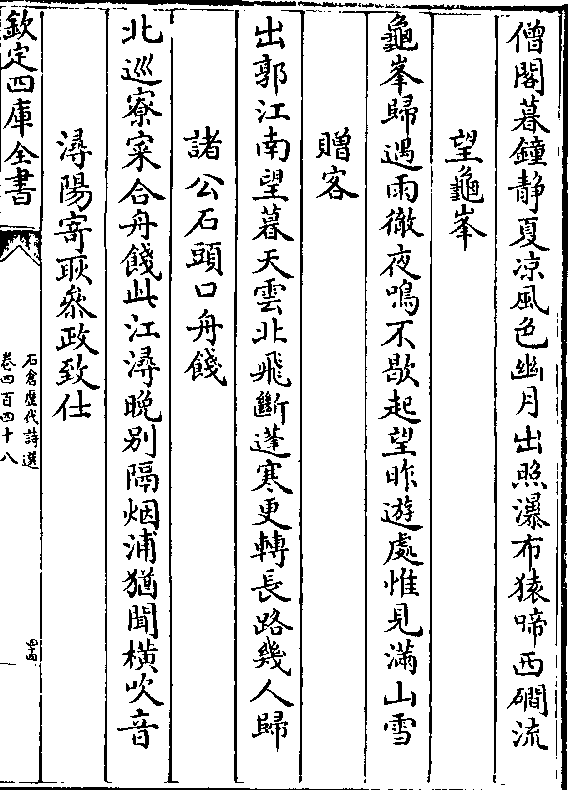 僧閣暮鐘静夏凉風色幽月出照瀑布猿啼西磵流
望龜峯
龜峯歸遇雨徹夜鳴不歇起望昨遊處惟見滿山雪
贈客
出郭江南望暮天雲北飛斷蓬寒更轉長路幾人歸
諸公石頭口舟餞
北巡寮寀合舟餞此江潯晚别隔烟浦猶聞横吹音
潯陽寄耿叅政致仕
欽定四庫全書
石倉歷代詩選
卷四百四十八